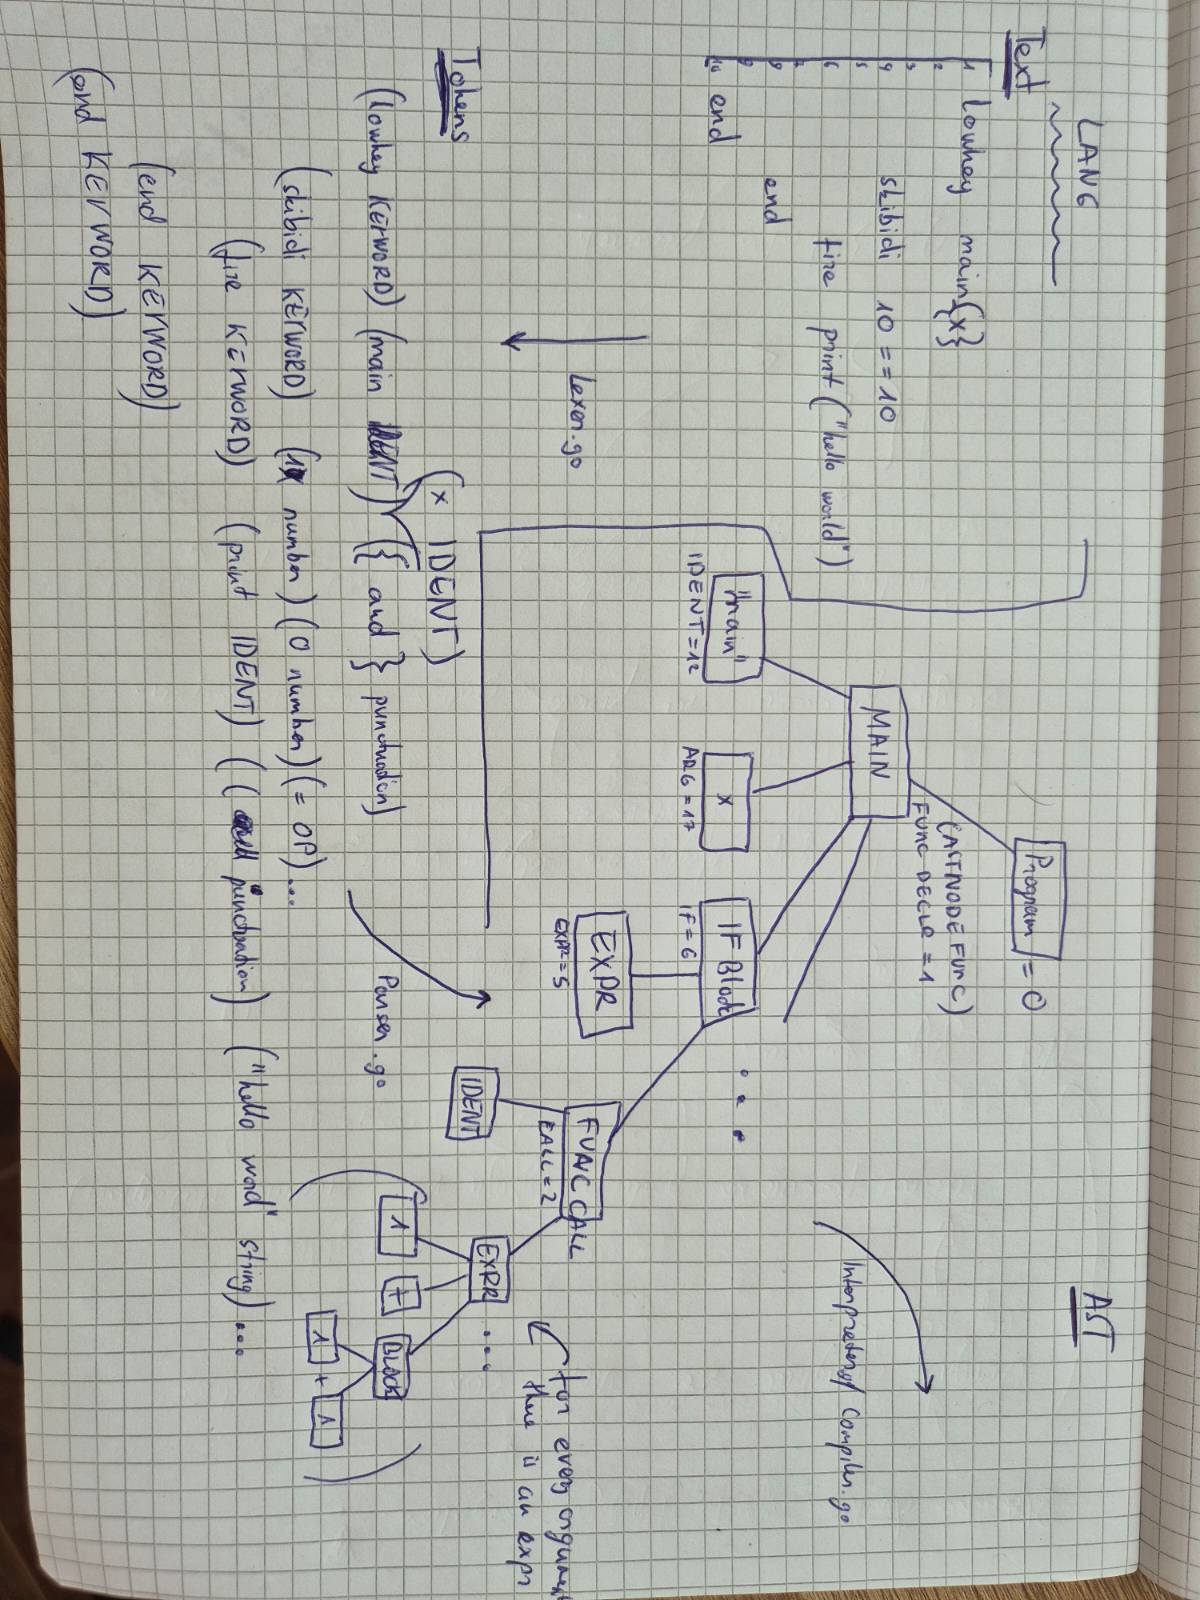 LANG
Text
1 lowkey main{x}
2
3
4 skibidi 10 == 10
5
6 fire print("hello world")
7
8 end
9
10 end
Lexer.go
Tokens
(x IDENT)
(lowkey KEYWORD) (main IDENT) ({ and } punctuation)
(skibidi KEYWORD) (1 number) (0 number) (= OP)...
(fire KEYWORD) (print IDENT) (( punctuation) ("hello word" string)...
(end KEYWORD)
(end KEYWORD)
Parser.go
AST
Program = 0
(ASTNODE FUNC)
FUNC DECLR = 1
MAIN
"main"
IDENT = 12
x
ARG = 17
IF Block
IF = 6
...
EXPR
EXPR = 5
FUNC CALL
CALL = 2
for every argument
there is an expr
IDENT
EXRR ...
( 1 + BLOCK
1 + 1 )
Interpreter.go/ Compiler.go